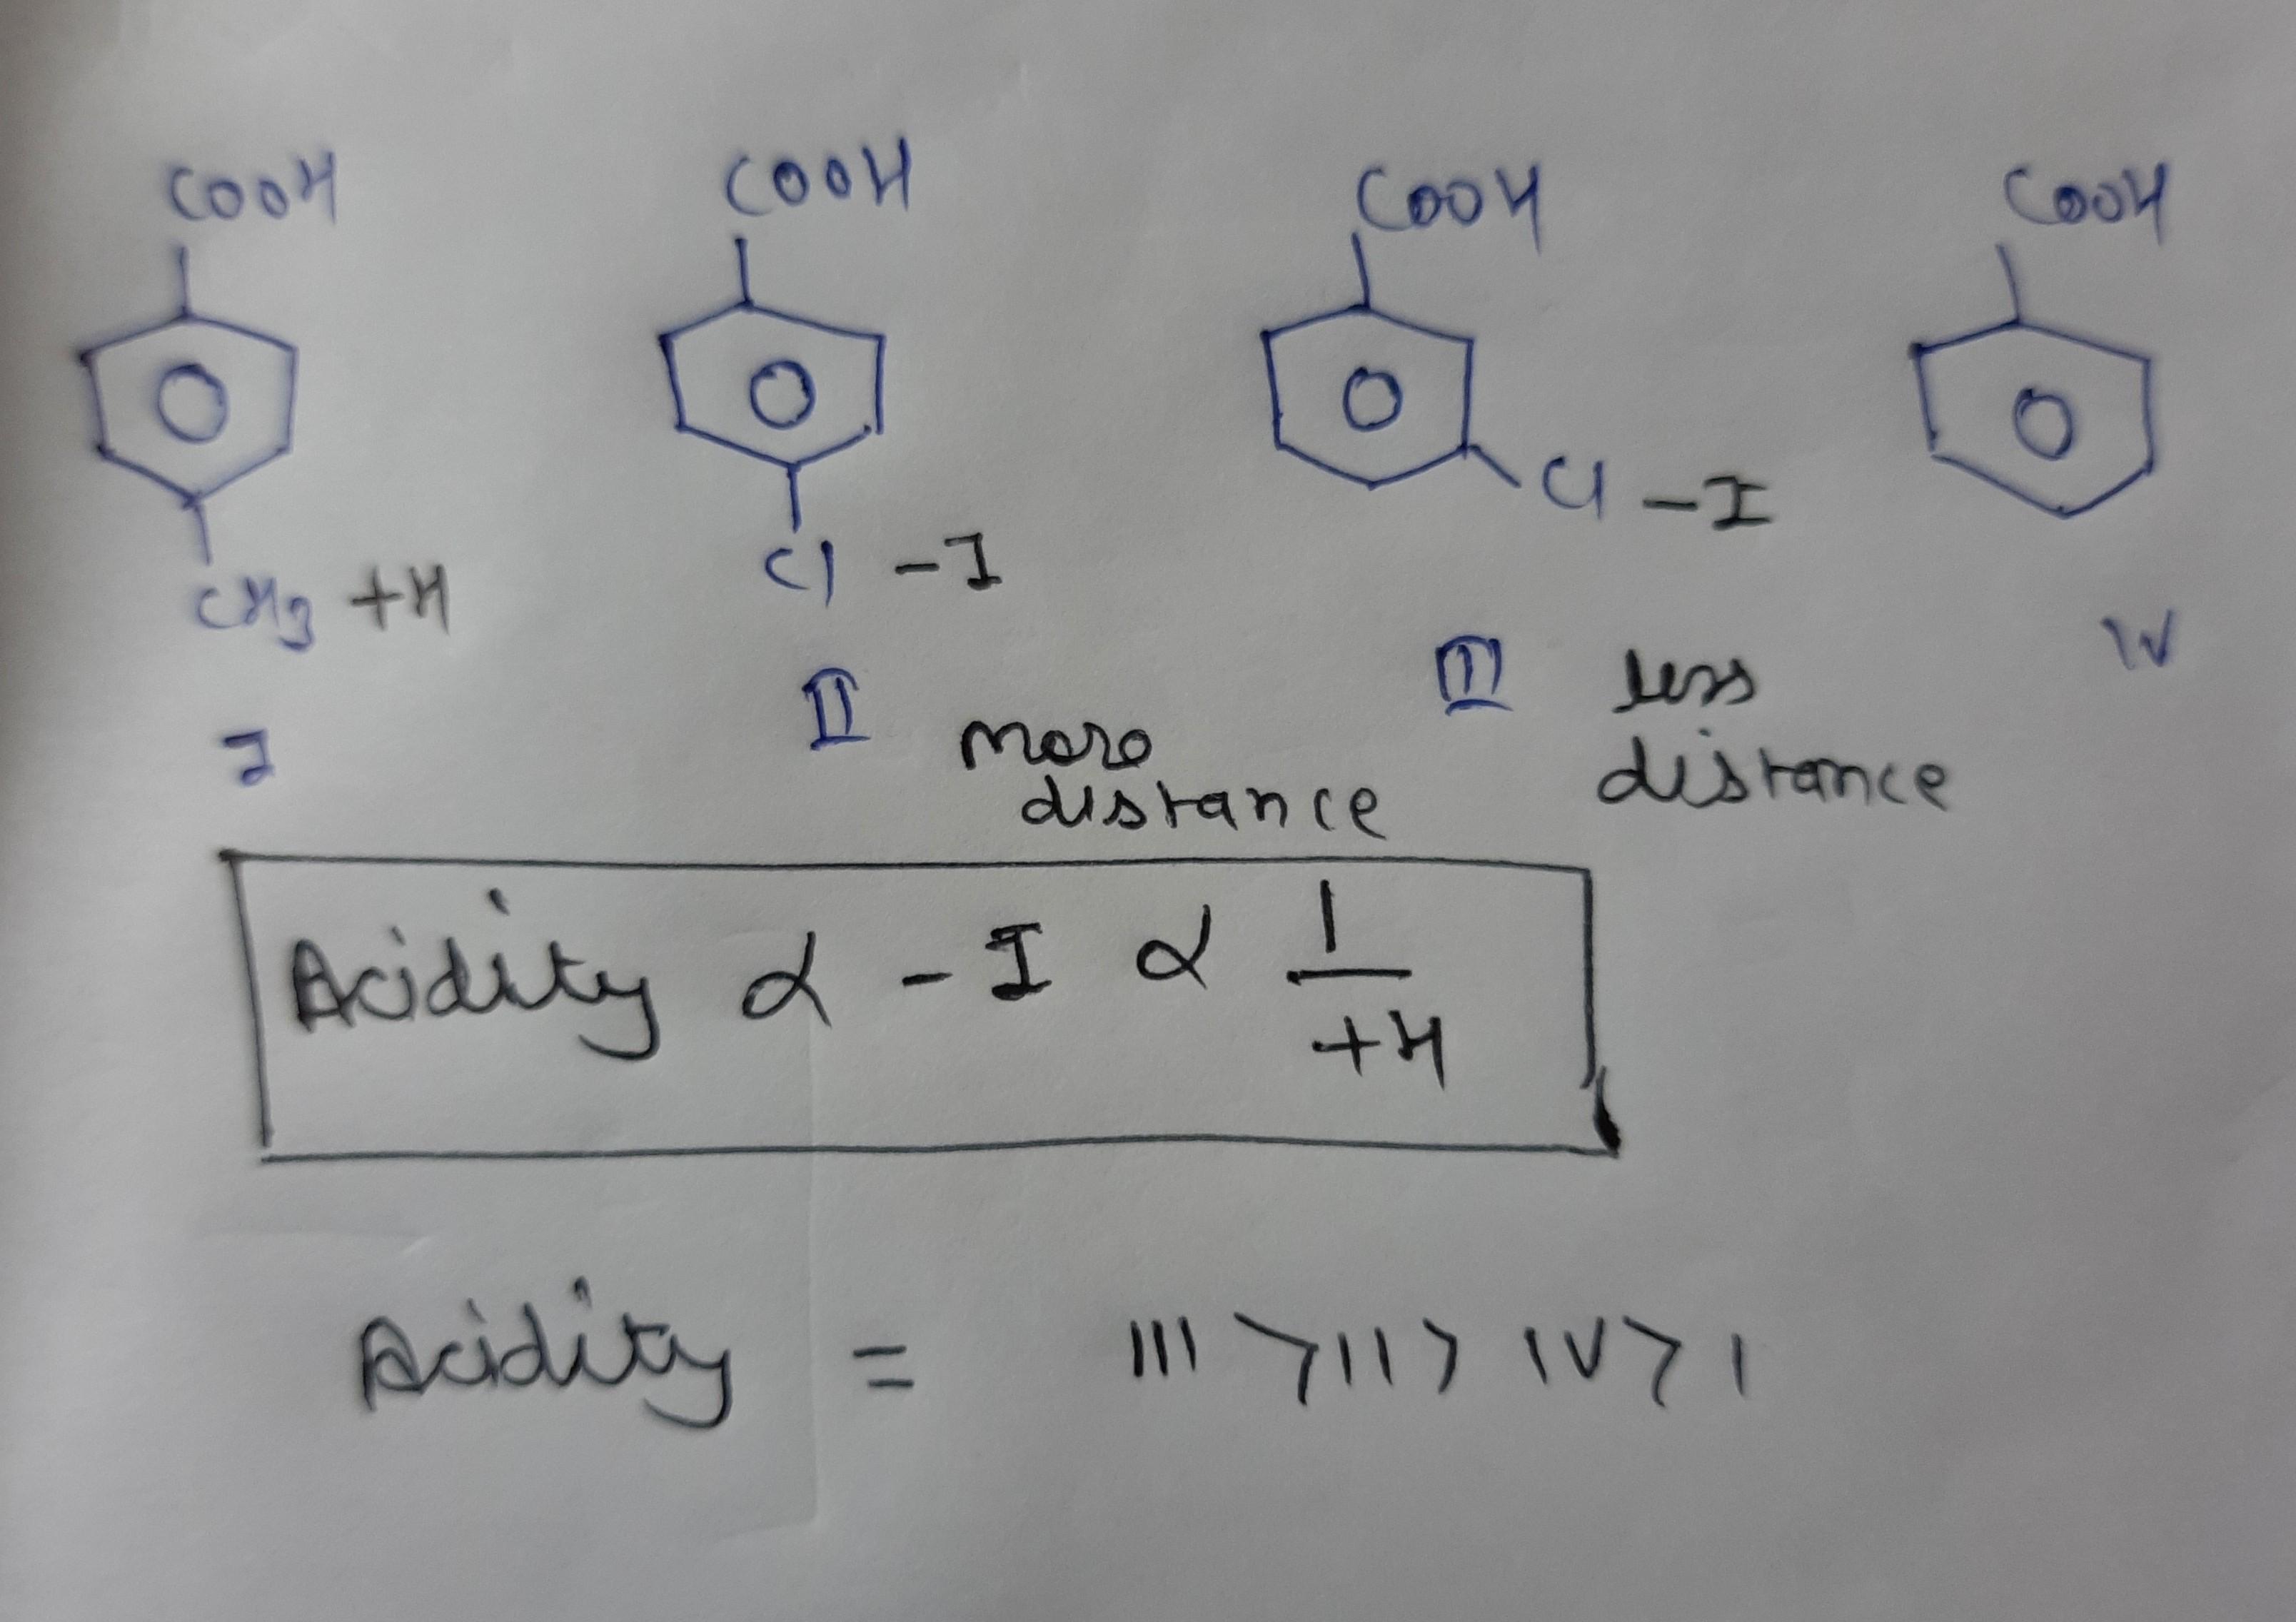 COOH COOH COOH COOH
Cl -I
Cl -I
CH3 +H
I II III IV
more distance
less distance
Acidity α -I α 1/+H
Acidity = III > II > IV > I